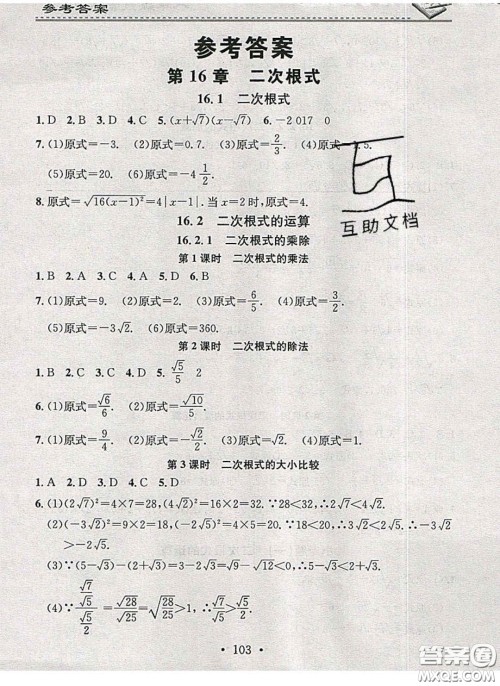 参考答案
参考答案
第16章 二次根式
16.1 二次根式
1. D 2. D 3. D 4. C 5. (x+√7)(x-√7) 6. -2 017 0
7. (1)原式=-3. (2)原式=0.7. (3)原式=2/3. .5.
(5)原式=20. (6)原式=-4 1/2.
8. 原式=√(16(x-1)²)=4|x-1|. 当x=2时,原式=4.
16.2 二次根式的运算
16.2.1 二次根式的乘除
第1课时 二次根式的乘法
互助文档
1. B 2. A 3. A 4. C 5. D 6. B
7. (1)原式=9. (2)原式=2. (3)原式=6/5. (4)原式=3/2.
(5)原式=-3√2. (6)原式=360.
第2课时 二次根式的除法
1. B 2. C 3. C 4. D 5. √5/5 2
6. (1)原式=√6/6. (2)原式=√10/5.
7. (1)原式=9/4. (2)原式=-√2/2. (3)原式=1.
第3课时 二次根式的大小比较
1. B 2. D 3. A 4. C 5. D
6. (1)(2√7)²=4×7=28, (4√2)²=16×2=32. ∵28<32, ∴2√7<4√2.
(2)(-3√2)²=9×2=18, (-2√5)²=4×5=20. ∵18<20, ∴-3√2
>-2√5.
(3)∵√5-(2+√3)=(√5-√3)-2<0, ∴√5<2+√3.
(4)∵(√7/√5)/(√5/2)=√28/√25=√(28/25)>1, ∴√7/√5>√5/2.
· 103 ·
答案圈
MXQE.COM